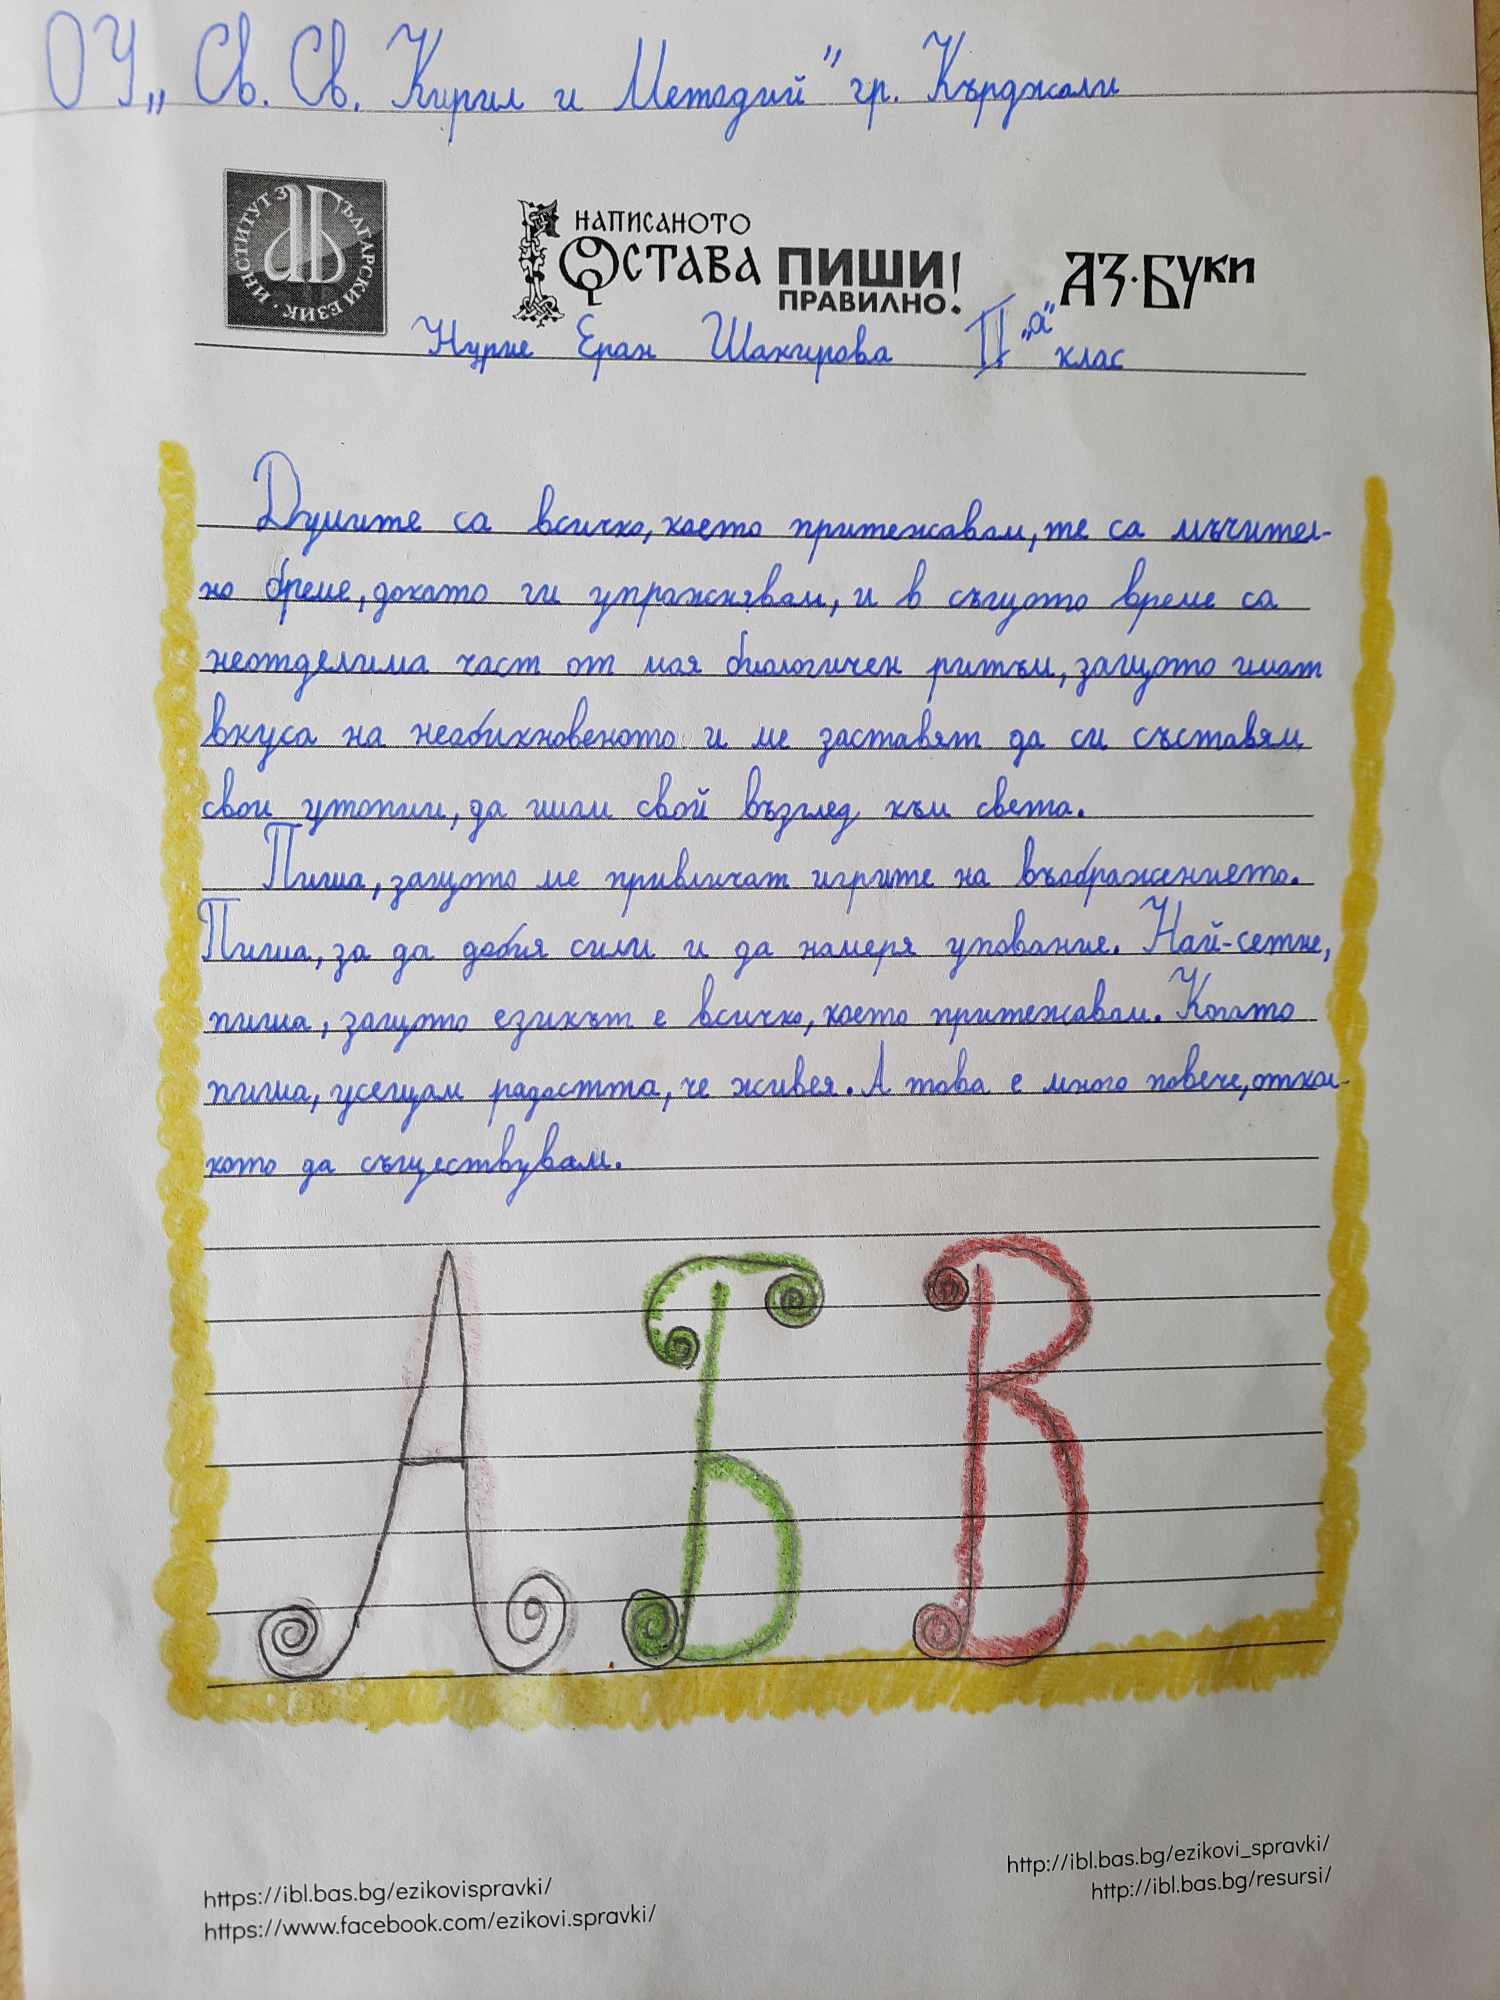 ОУ „ Св. Св. Кирил и Методий" гр. Кърджали
ИНСТИТУТ ЗА БЪЛГАРСКИ ЕЗИК
НАПИСАНОТО
ОСТАВА ПИШИ!
ПРАВИЛНО!
АЗ·БУКИ
Нурие Еран Шакирова II „а" клас
Думите са всичко, което притежавам, те са мъчител-
но бреме, докато ги упражнявам, и в същото време са
неотделима част от моя биологичен ритъм, защото имат
вкуса на необикновеното и ме заставят да си съставям
свои утопии, да имам свой възглед към света.
Пиша, защото ме привличат игрите на въображението.
Пиша, за да добия сили и да намеря упование. Най-сетне,
пиша, защото езикът е всичко, което притежавам. Когато
пиша, усещам радостта, че живея. А това е много повече, откол-
кото да съществувам.
А Б В
https://ibl.bas.bg/ezikovispravki/
https://www.facebook.com/ezikovi.spravki/
http://ibl.bas.bg/ezikovi_spravki/
http://ibl.bas.bg/resursi/